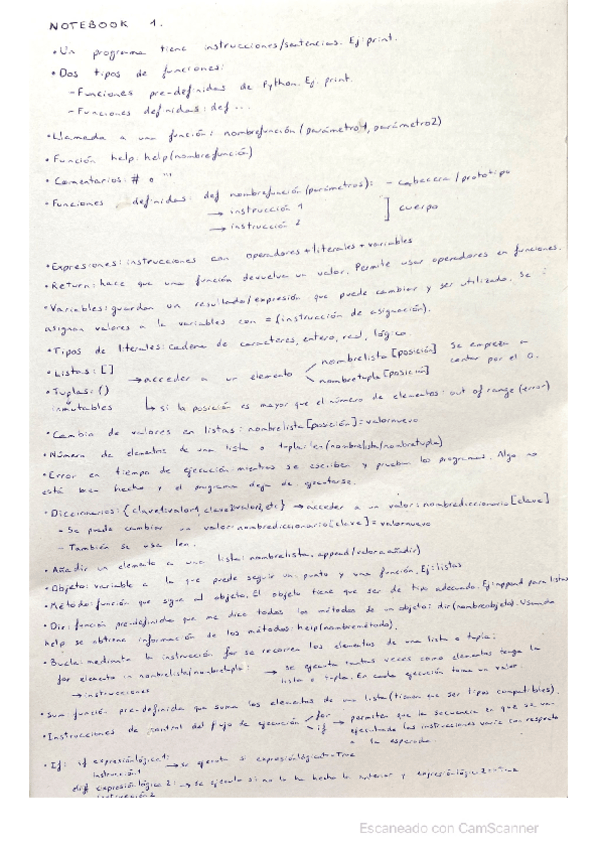 NOTEBOOK 1.
• Un programa tiene instrucciones/sentencias. Ej: print.
• Dos tipos de funciones:
– Funciones pre-definidas de Python. Ej. print.
– Funciones definidas: def ...
• Llamada a una función: nombrefunción(parámetro1, parámetro2)
• Función help: help(nombrefunción)
• Comentarios: # o '''
• Funciones definidas: def nombrefunción(parámetros): – cabecera/prototipo
→ instrucción 1
→ instrucción 2 ] cuerpo
• Expresiones: instrucciones con operadores + literales + variables
• Return: hace que una función devuelva un valor. Permite usar operadores en funciones.
• Variables: guardan un resultado/expresión que puede cambiar y ser utilizado. Se
asignan valores a la variables con = (instrucción de asignación).
• Tipos de literales: cadena de caracteres, entero, real, lógico.
• Listas: [] → acceder a un elemento nombrelista[posición] Se empieza a
• Tuplas: () nombretupla[posición] contar por el 0.
inmutables ↳ si la posición es mayor que el número de elementos: out of range (error)
• Cambio de valores en listas: nombrelista[posición]=valornuevo
• Número de elementos de una lista o tupla: len(nombrelista/nombretupla)
• Error en tiempo de ejecución: mientras se escriben y prueban los programas. Algo no
está bien hecho y el programa deja de ejecutarse.
• Diccionarios: {clave1:valor1, clave2:valor2, etc} → acceder a un valor: nombrediccionario[clave]
– Se puede cambiar un valor: nombrediccionario[clave]=valornuevo
– También se usa len.
• Añadir un elemento a una lista: nombrelista.append(valor a añadir)
• Objeto: variable a la que puede seguir un punto y una función. Ej: listas
• Método: función que sigue al objeto. El objeto tiene que ser de tipo adecuado. Ej: append para listas
• Dir: función predefinida que me dice todos los métodos de un objeto: dir(nombreobjeto). Usando
help se obtiene información de los métodos: help(nombremétodo).
• Bucle: mediante la instrucción for se recorren los elementos de una lista o tupla:
for elemento in nombrelista/nombretupla: → se ejecuta tantas veces como elementos tenga la
→ instrucciones lista o tupla. En cada ejecución toma un valor.
• Sum función pre-definida que suma los elementos de una lista (tienen que ser tipos compatibles).
• Instrucciones de control del flujo de ejecución for if → permiten que la secuencia en que se van
ejecutando las instrucciones varíe con respecto
a la esperada
• If: if expresiónlógica1: → se ejecuta si expresiónlógica1=True
instrucción1
elif expresiónlógica2: → se ejecuta si no lo ha hecho la anterior y expresiónlógica2=True
instrucción2
Escaneado con CamScanner